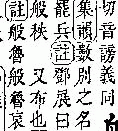 切音謗義同
集韻數別之名
罷兵註鄧展曰
般秩 又布也
註般魯般哀